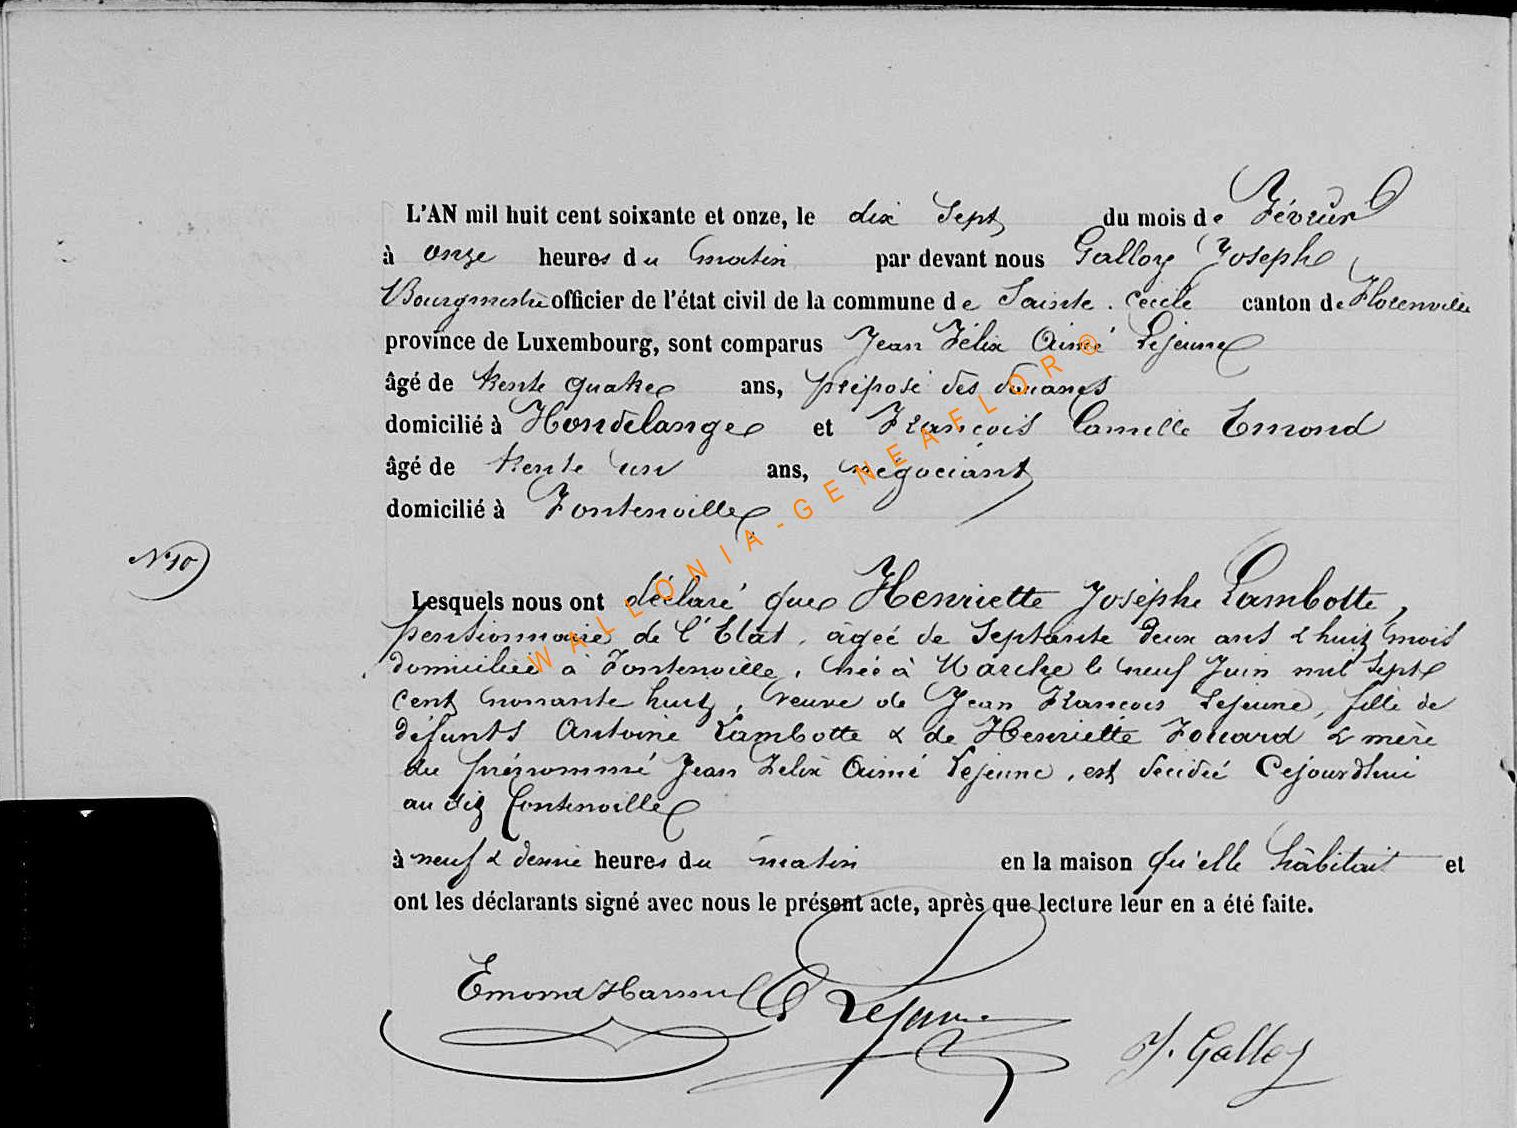 L'AN mil huit cent soixante et onze, le dix sept du mois de Février
à onze heures du matin par devant nous Galloy Joseph
Bourgmestre officier de l'état civil de la commune de Sainte. Cécile canton de Florenville
province de Luxembourg, sont comparus Jean Félix Aimé Lejeune
âgé de trente quatre ans, préposé des douanes
domicilié à Hondelange et François Camille Emond
âgé de trente un ans, négociant
domicilié à Fontenoille
N° 10
Lesquels nous ont déclaré que Henriette Josèphe Lambotte,
pensionnaire de l'Etat, âgée de septante deux ans & huit mois
domiciliée à Fontenoille, née à Marche le neuf Juin mil sept
cent nonante huit, veuve de Jean François Lejeune, fille de
défunts Antoine Lambotte & de Henriette Fouard & mère
du prénommé Jean Félix Aimé Lejeune, est décédée cejourd'hui
au dit Fontenoille
à neuf & demie heures du matin en la maison qu'elle habitait et
ont les déclarants signé avec nous le présent acte, après que lecture leur en a été faite.
Emond Lejeune
J. Galloy
WALLONIA-GENEAFLOR®